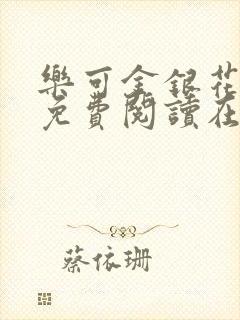 樂可金銀花
免費閱讀在
蔡依珊